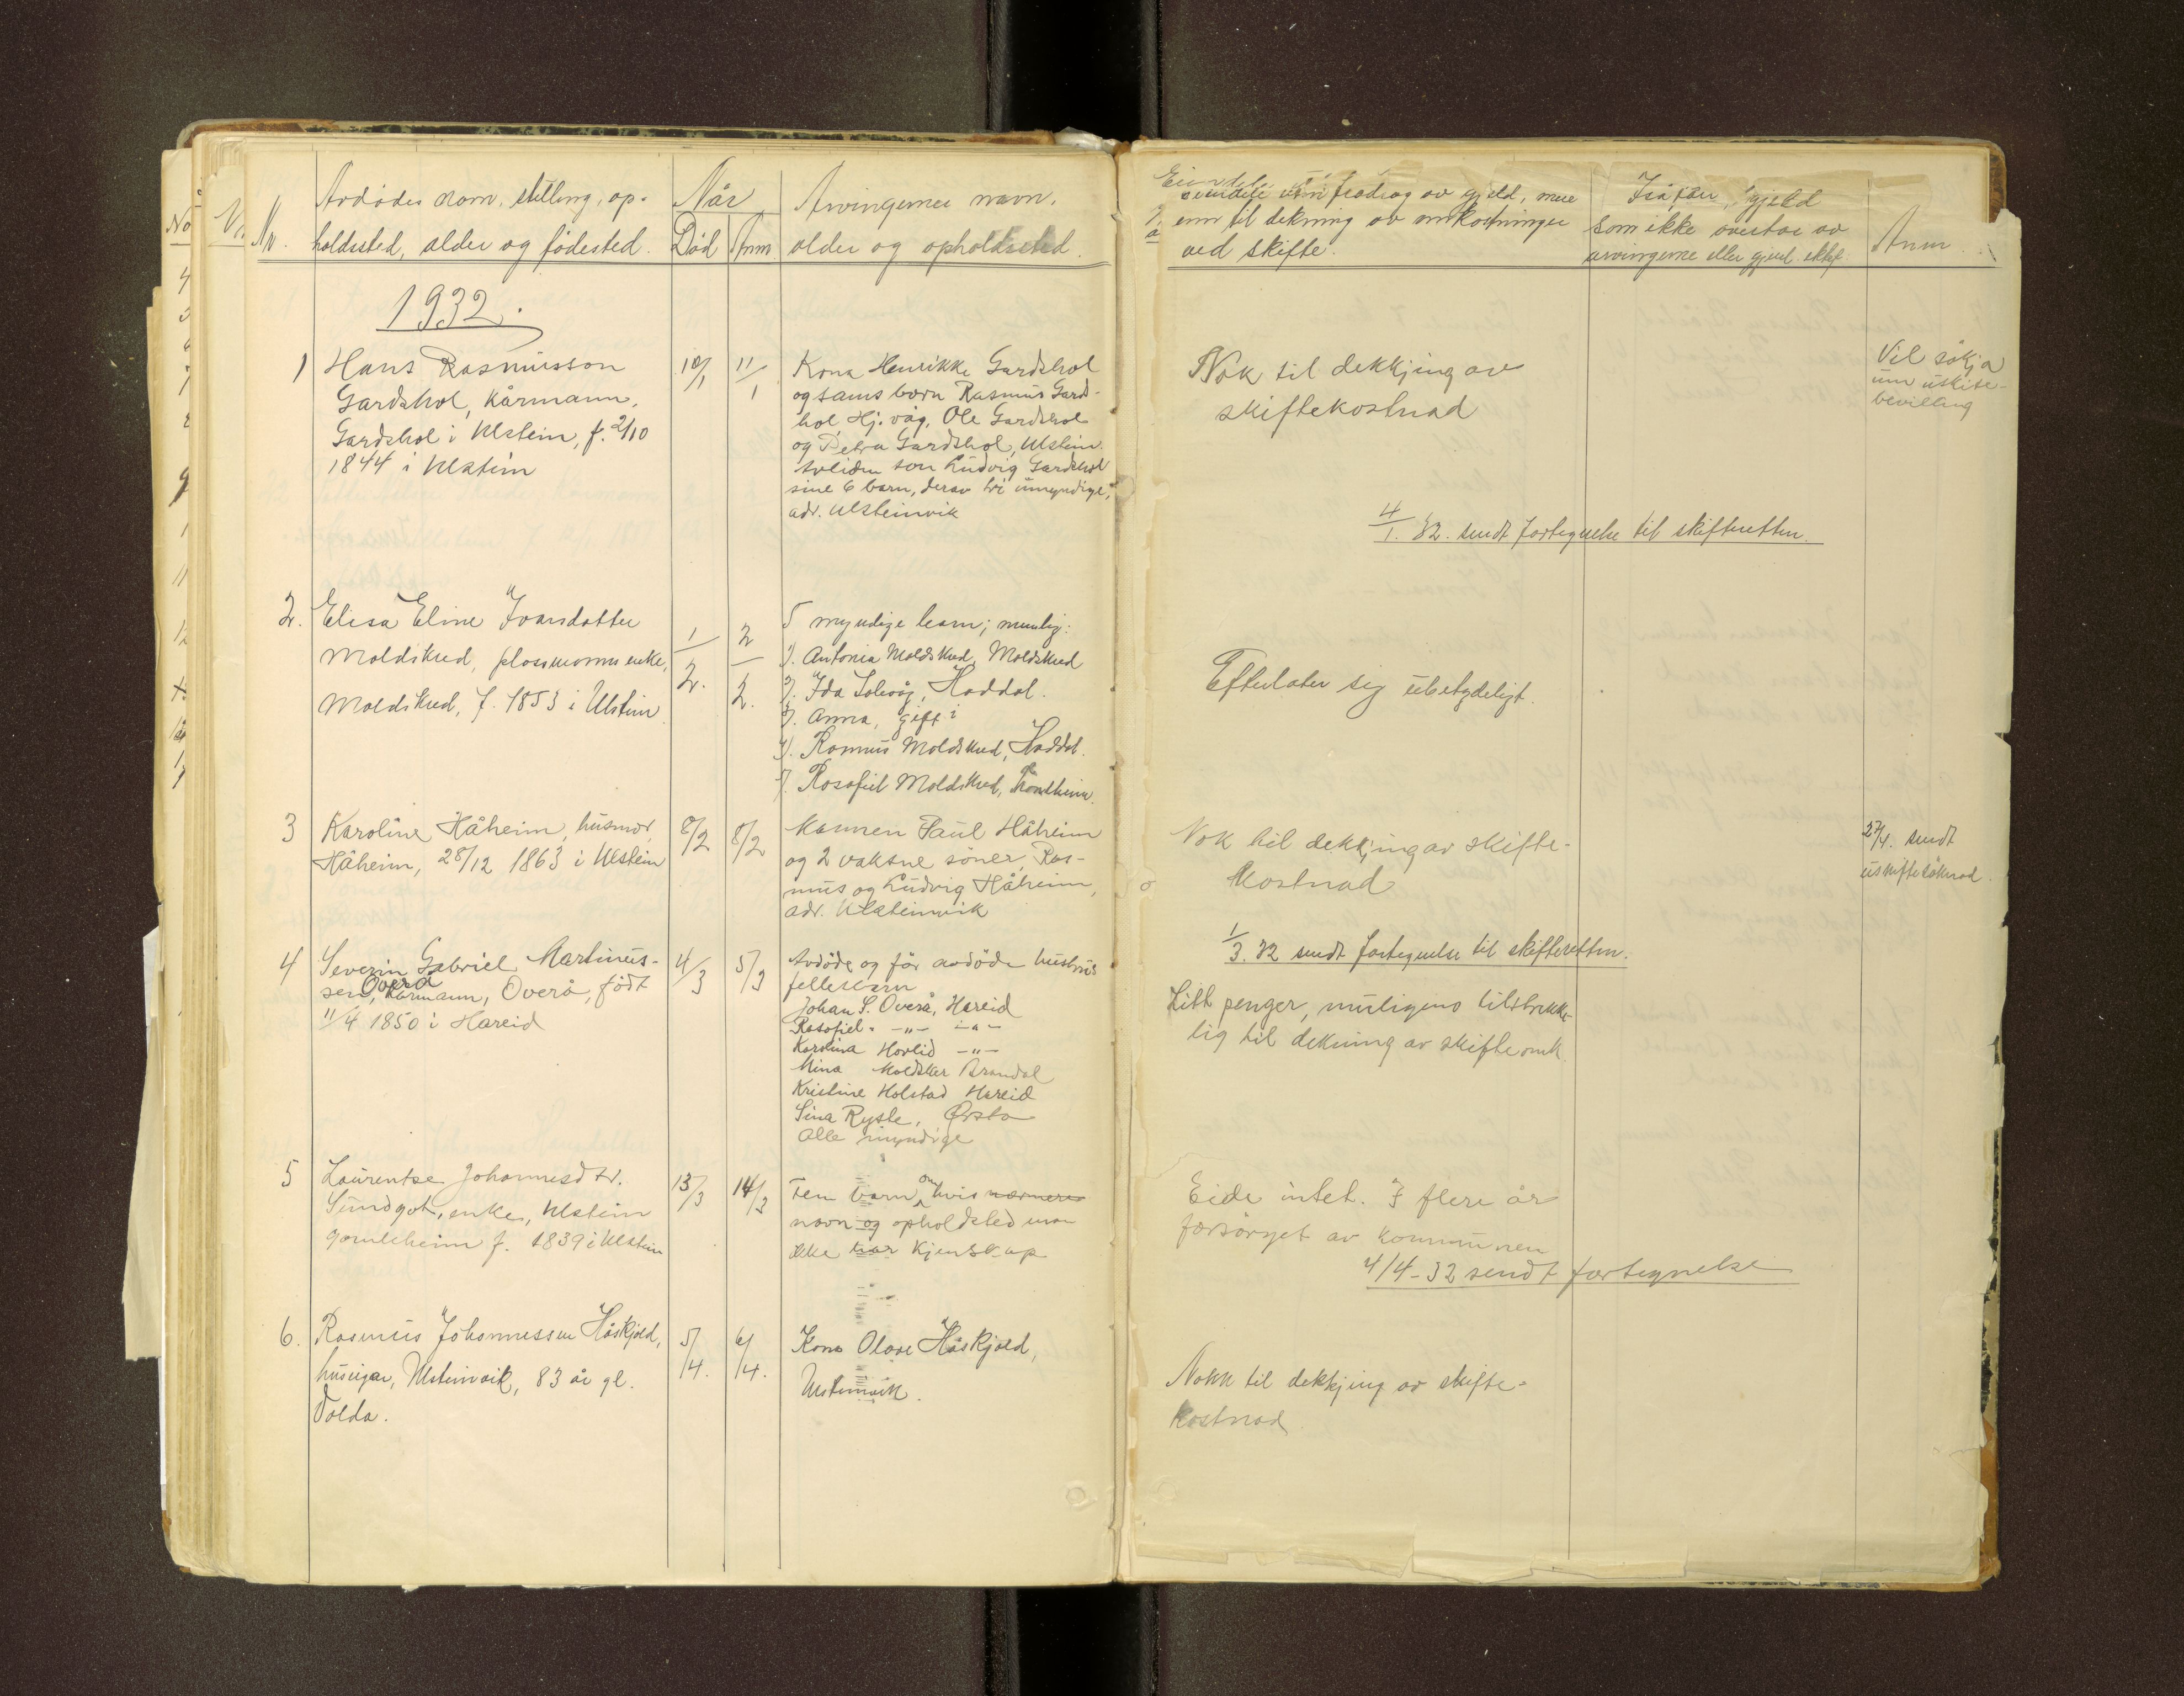 Nr.
Avdødes navn, stilling, op-
holdssted, alder og fødested.
Når
Død
Anm
Arvingernes navn,
alder og opholdssted.
eiendele uten fradrag av gjeld, mere
enn til dekning av omkostninger
ved skifte.
gjeld
som ikke overtas av
arvingerne eller gjenl. ektef.
Anm.
1932.
1
Hans Rasmusson
Gardshol, kårmann,
Gardshol i Ulstein, f. 2/10
1844 i Ulstein
10/1
11/1
Kona Henrikke Gardshol
og sams born Rasmus Gards-
hol, Hj.våg, Ole Gardshol
og Petra Gardshol, Ulstein.
Avliden son Ludvig Gardshol
sine 6 barn, derav tri umyndige,
adr. Ulsteinvik
Nok til dekkjing av
skiftekostnad
Vil søkja
um uskifte-
bevilling
4/1. 32. sendt fortegnelse til skifteretten.
2.
Elisa Eline Ivarsdatter
Moldskred, plassmanns enke,
Moldskred, f. 1853 i Ulstein
1/2.
2/2.
5 myndige barn; nemlig:
1). Antonia Moldskred, Moldskred
2). Ida Solvåg, Haddal.
3). Anna, gift i
4). Rasmus Moldskred, Haddal.
5). Rosofiel Moldskred, Trondheim.
Efterlater sig ubetydeligt.
3
Karoline Håheim, husmor,
Håheim, 28/12 1863 i Ulstein
8/2
8/2
Mannen Paul Håheim
og 2 vaksne søner, Ras-
mus og Ludvig Håheim,
adr. Ulsteinvik
Nok til dekkjing av skifte-
kostnad
27/4. sendt
uskiftesøknad.
1/3. 32 sendt fortegnelse til skifteretten.
4
Severin Gabriel Martinus-
sen Overå, kårmann, Overå, født
11/4 1850 i Hareid
4/3
5/3
Avdøde og før avdøde hustrus
fellesbarn
Johan S. Overå, Hareid
Rosofiel - -"- -"-
Karolina Hovlid -"-
Mina Moldsker Brandal
Kristine Holstad Hareid
Sina Rysle, Ørsta
Alle myndige
Litt penger, muligens tilstrekke-
lig til dekning av skifteomk.
5
Laurentse Johannesdtr.
Sundgot, enke, Ulstein
gamleheim f. 1839 i Ulstein
13/3
14/3
Fem barn, om hvis nærmere
navn og opholdsted man
ikke har kjenskap
Eide intet. I flere år
forsørget av kommunen
4/4-32 sendt fortegnelse
6.
Rasmus Johannessen Håskjold,
huseigar, Ulsteinvik, 83 år gl.
Volda.
5/4.
6/4.
Kona Olave Håskjold,
Ulsteinvik.
Nokk til dekkjing av skifte-
kostnad.